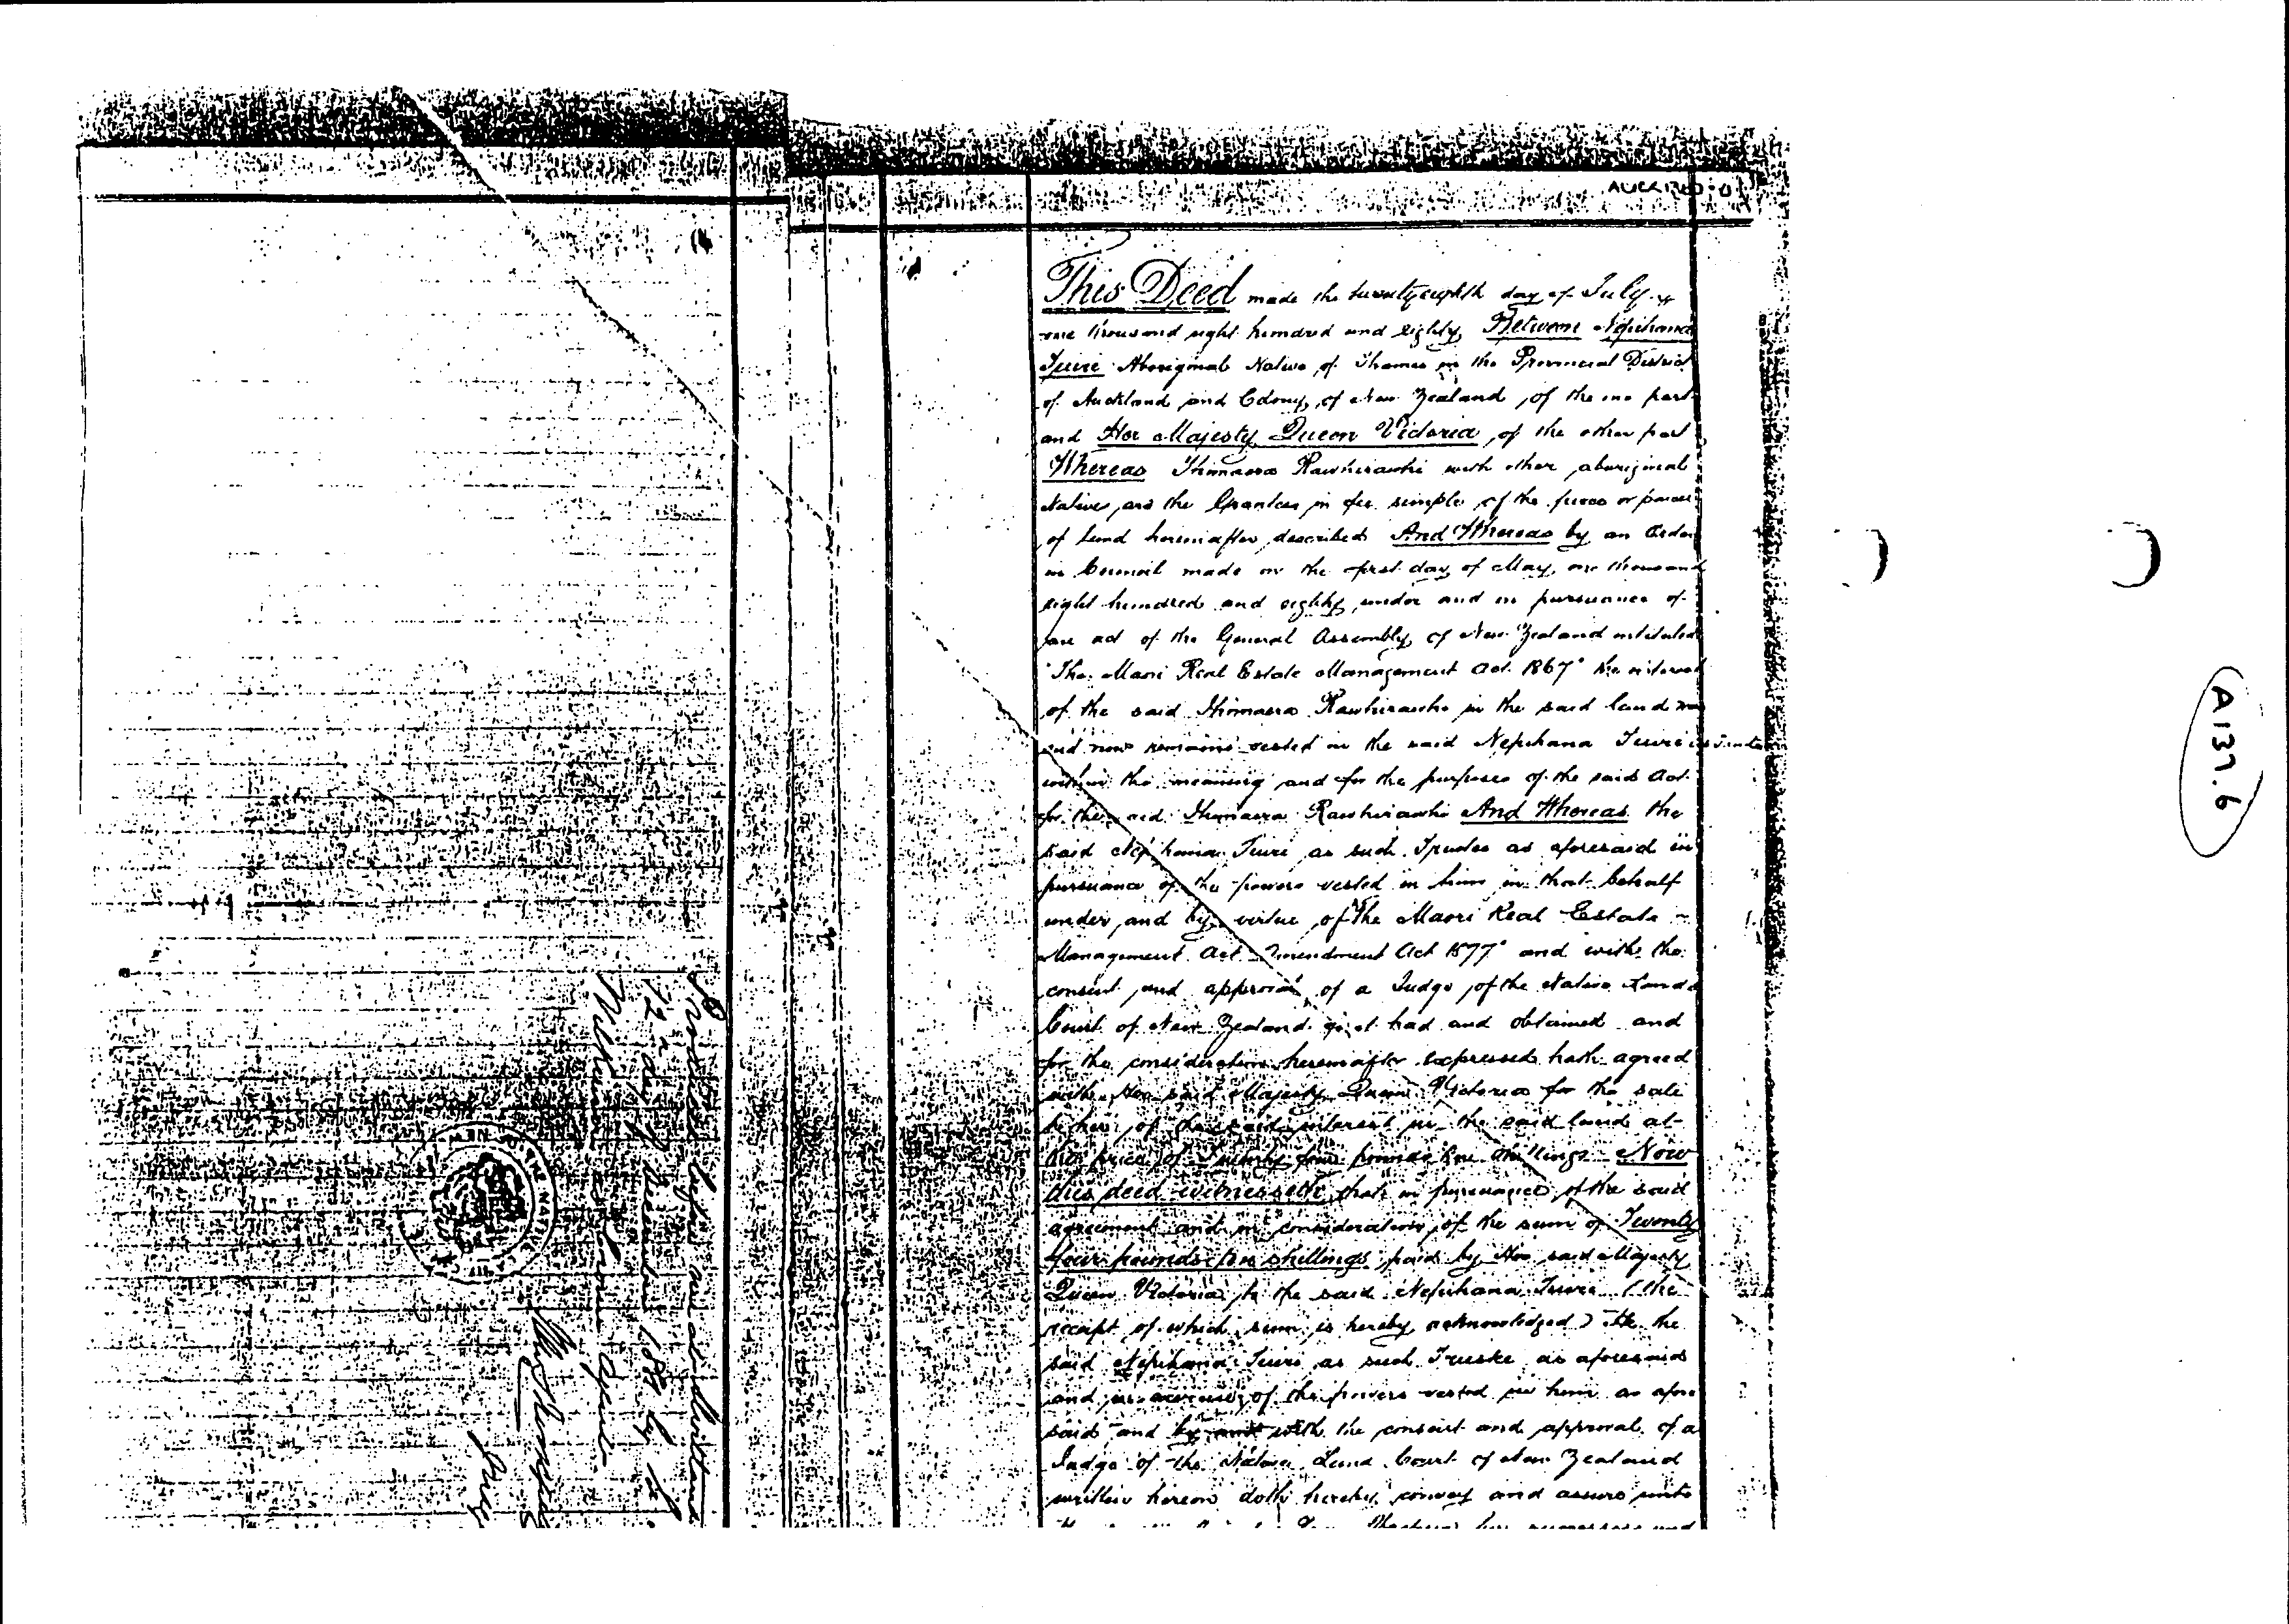 This Deed made the twentyeighth day of July
one thousand eight hundred and eighty Between Nepihana
Tuiri Aboriginal Native of Thames in the Provincial District
of Auckland and Colony of New Zealand of the one part
and Her Majesty Queen Victoria of the other part
Whereas Ihimaera Rawhirawhi with other aboriginal
Natives are the Grantees in fee simple of the piece or parcel
of land hereinafter described And Whereas by an Order
in Council made on the first day of May one thousand
eight hundred and eighty under and in pursuance of
an act of the General Assembly of New Zealand intituled
"The Maori Real Estate Management Act 1867" the interest
of the said Ihimaera Rawhirawhi in the said land was
and now remains vested in the said Nepihana Tuiri as Trustee
within the meaning and for the purposes of the said Act
for the said Ihimaera Rawhirawhi And Whereas the
said Nepihana Tuiri as such Trustee as aforesaid in
pursuance of the powers vested in him in that behalf
under and by virtue of "The Maori Real Estate
Management Act Amendment Act 1877" and with the
consent and approval of a Judge of the Native Land
Court of New Zealand first had and obtained and
for the consideration hereinafter expressed hath agreed
with Her said Majesty Queen Victoria for the sale
to her of the said interest in the said land at
the price of Twenty four pounds ten shillings Now
this deed witnesseth that in pursuance of the said
agreement and in consideration of the sum of Twenty
four pounds ten shillings paid by Her said Majesty
Queen Victoria to the said Nepihana Tuiri (the
receipt of which sum is hereby acknowledged) He the
said Nepihana Tuiri as such Trustee as aforesaid
and in exercise of the powers vested in him as afore
said and by and with the consent and approval of a
Judge of the Native Land Court of New Zealand
written hereon doth hereby convey and assure unto
successors and
before me at
22nd day of
NATIVE
NEW
A137.6